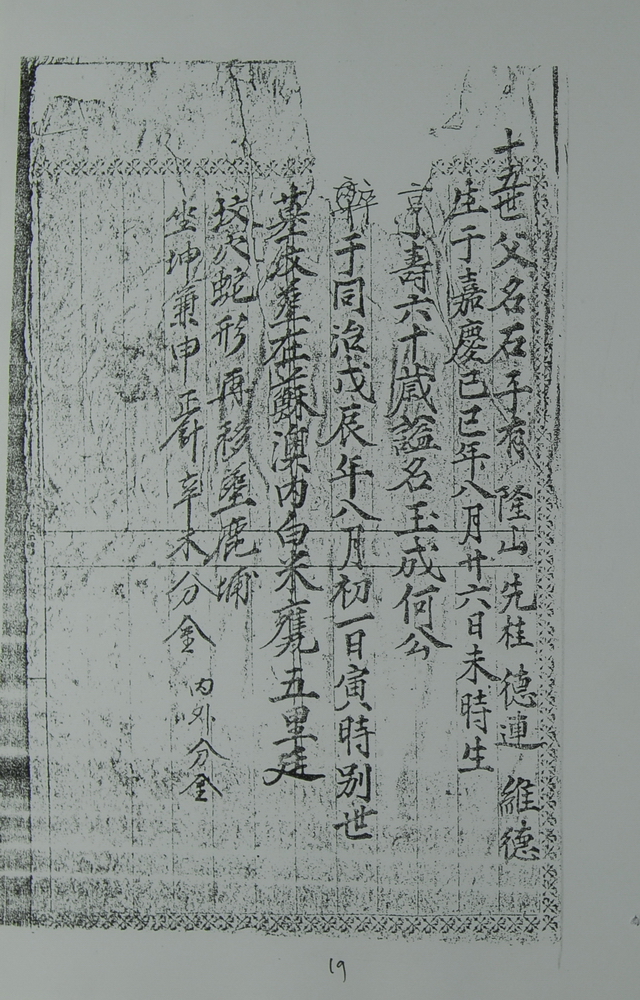 十五世父名石子有 隆山 先桂 德連 維德
生于嘉慶己巳年八月廿六日未時生
享壽六十歲謚名玉成何公
卒于同治戊辰年八月初一日寅時別世
墓坟塟在蘇澳內白米甕五里廷
坟穴蛇形再移塟鹿埔
坐坤兼申正針辛未分金 內外分金
19